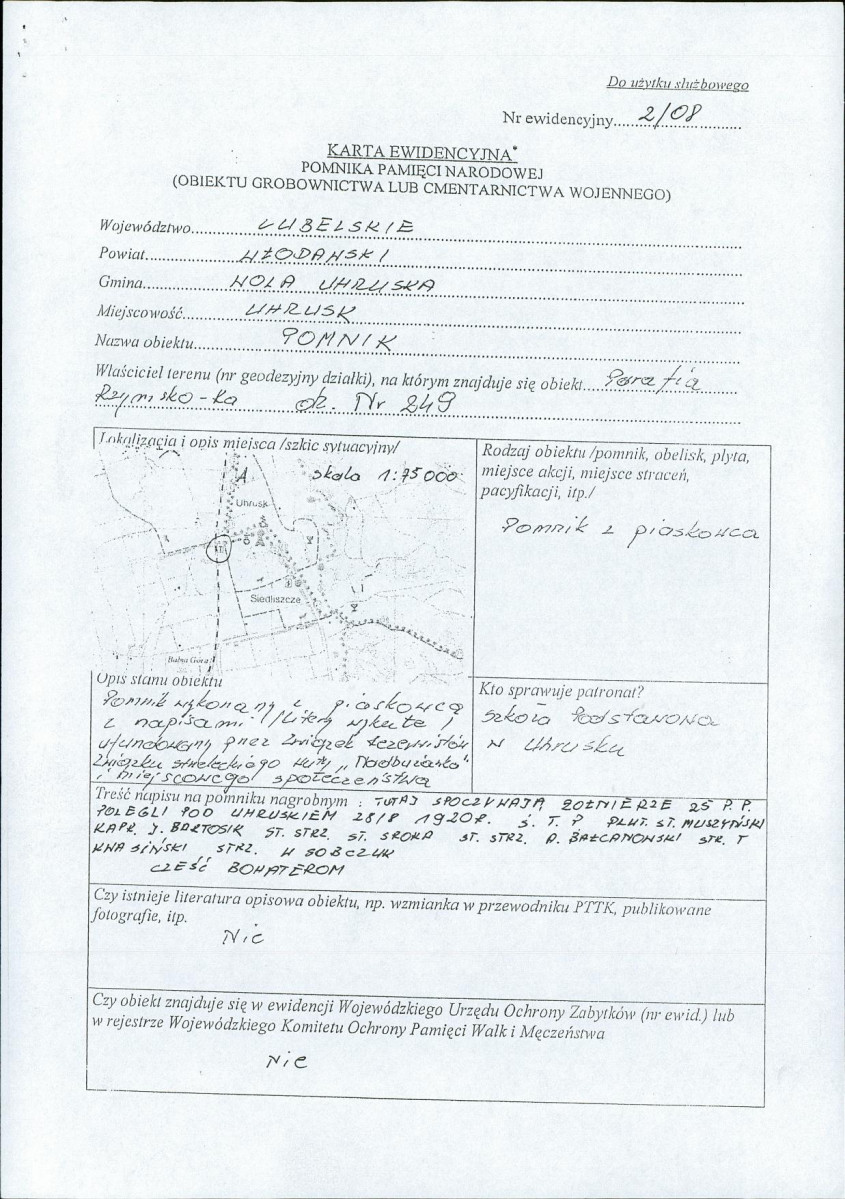 Do użytku służbowego
Nr ewidencyjny....2/08
KARTA EWIDENCYJNA*
POMNIKA PAMIĘCI NARODOWEJ
(OBIEKTU GROBOWNICTWA LUB CMENTARNICTWA WOJENNEGO)
Województwo....LUBELSKIE
Powiat....WŁODAWSKI
Gmina....WOLA UHRUSKA
Miejscowość....UHRUSK
Nazwa obiektu....POMNIK
Właściciel terenu (nr geodezyjny działki), na którym znajduje się obiekt....Parafia
Rzymsko-Ka dz. Nr 249
Lokalizacja i opis miejsca /szkic sytuacyjny/
skala 1:75 000
Uhrusk
Siedliszcze
Babia Góra
Rodzaj obiektu /pomnik, obelisk, płyta,
miejsce akcji, miejsce straceń,
pacyfikacji, itp./
Pomnik z piaskowca
Opis stanu obiektu
Pomnik wykonany z piaskowca
z napisami /litery wykute/
ufundowany przez Związek Rezerwistów
Związku Streleckiego Huty „Nadbużanka”
i miejscowego społeczeństwa
Kto sprawuje patronat?
Szkoła Podstawowa
w Uhrusku
Treść napisu na pomniku nagrobnym : TUTAJ SPOCZYWAJĄ ŻOŁNIERZE 25 P.P.
POLEGLI POD UHRUSKIEM 28/8 1920r. Ś. T. P PLUT. ST. MUSZYŃSKI
KAPR. J. BARTOSIK ST. STRZ. ST. SROKA ST. STRZ. A. BAŁCANOWSKI STR. T
KWASIŃSKI STRZ. W SOBCZUK
CZEŚĆ BOHATEROM
Czy istnieje literatura opisowa obiektu, np. wzmianka w przewodniku PTTK, publikowane
fotografie, itp.
Nie
Czy obiekt znajduje się w ewidencji Wojewódzkiego Urzędu Ochrony Zabytków (nr ewid.) lub
w rejestrze Wojewódzkiego Komitetu Ochrony Pamięci Walk i Męczeństwa
Nie